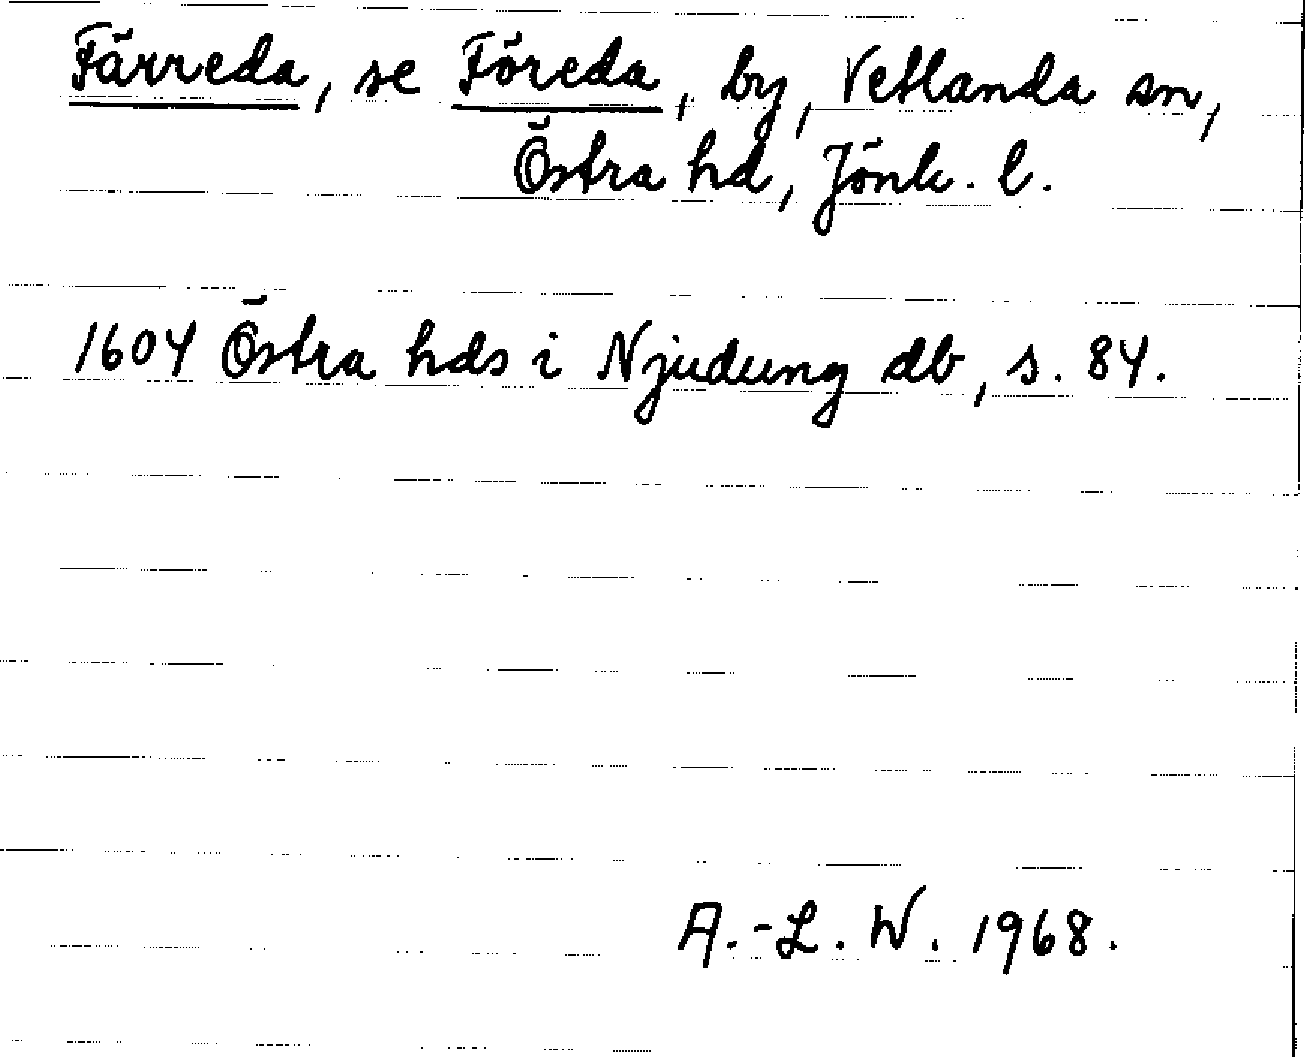 Färreda, se Föreda, by, Vetlanda sn,
Östra hd, Jönk. l.
1604 Östra hds i Njudung db, s. 84.
A.-L. W. 1968.